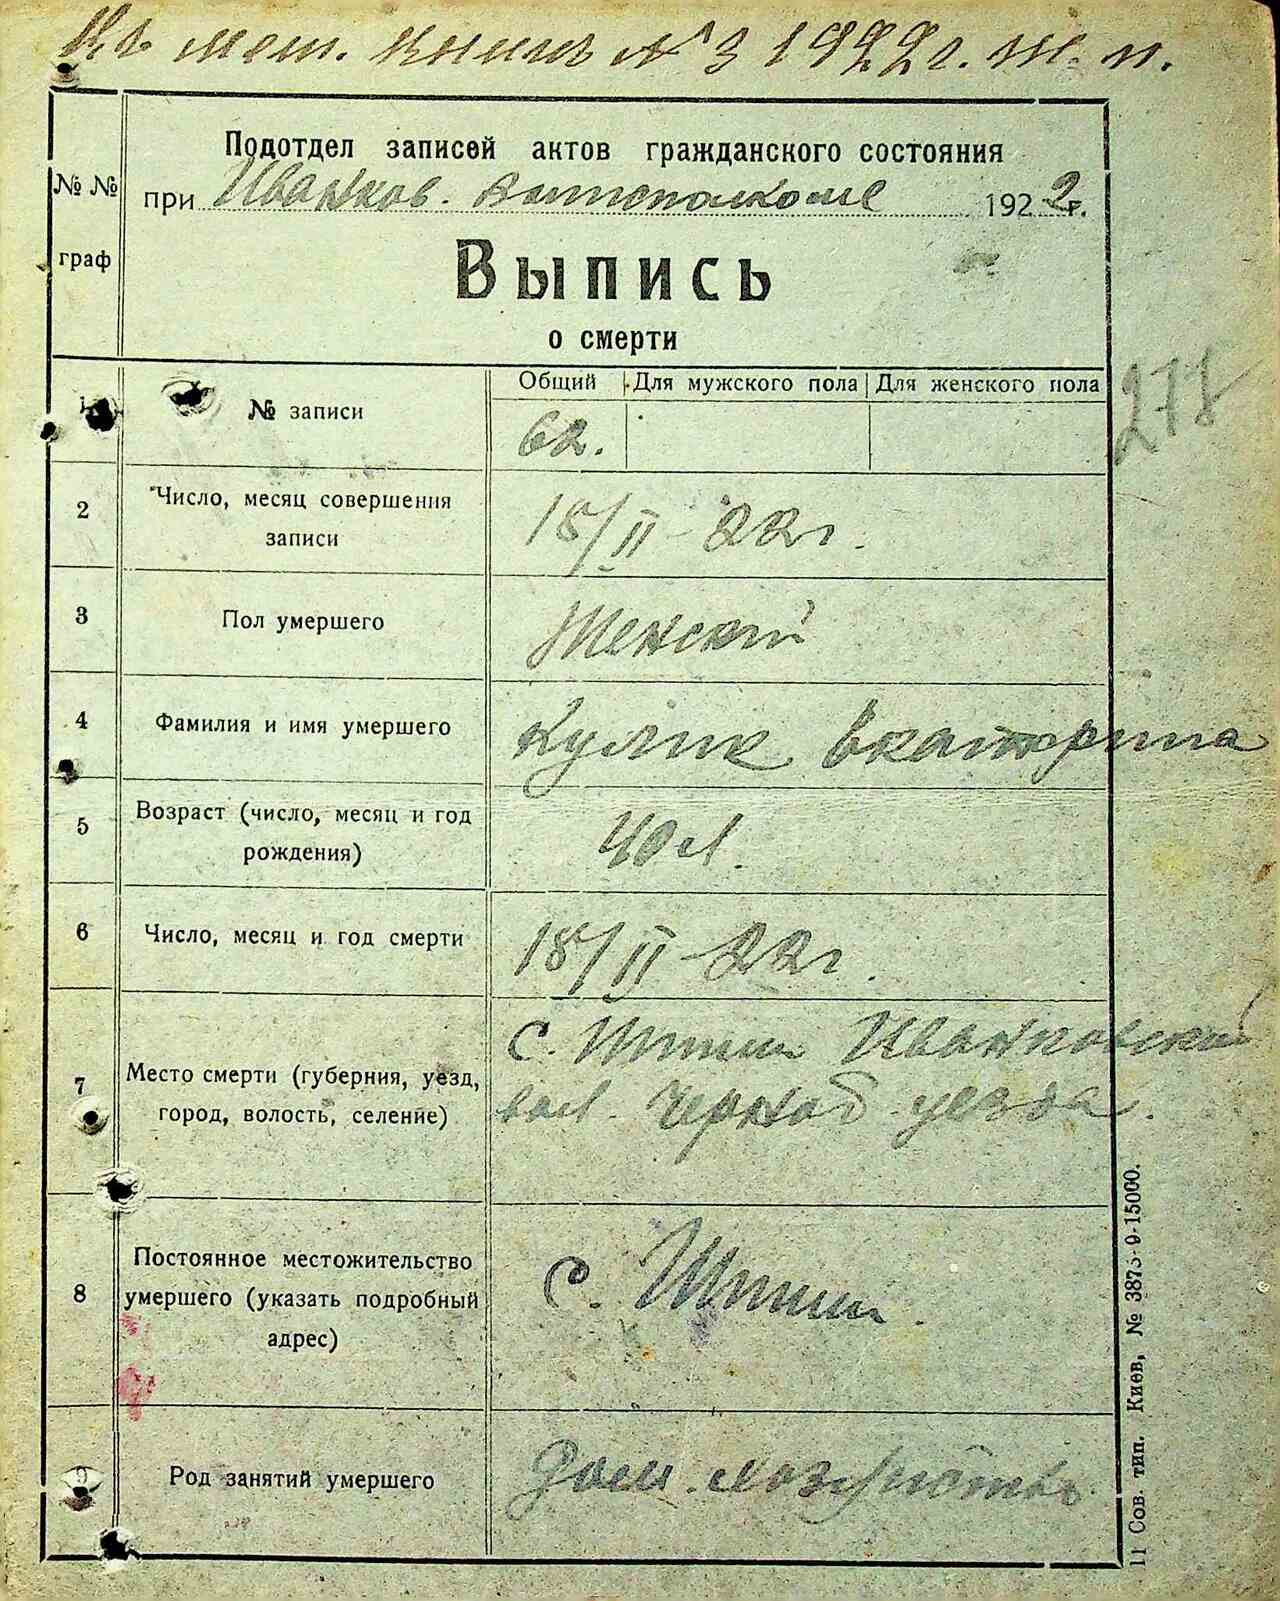 Къ мет. книгъ № 3 1922г. Ж. п.
Подотдел записей актов гражданского состояния
№ № граф
при Иванков. Волисполкоме 1922г.
Выпись
о смерти
Общий Для мужского пола Для женского пола
1 № записи 62.
278
2 Число, месяц совершения
записи 18/II 22г.
3 Пол умершего Женский
4 Фамилия и имя умершего Кулик Екатерина
5 Возраст (число, месяц и год
рождения) 40 л.
6 Число, месяц и год смерти 18/II 22г.
7 Место смерти (губерния, уезд,
город, волость, селение)
с. Иванковский
вол. Черноб. уезда.
8 Постоянное местожительство
умершего (указать подробный
адрес)
с.
9 Род занятий умершего Дом. хозяйство
11 Сов. тип. Киев, № 3873-9-15000.